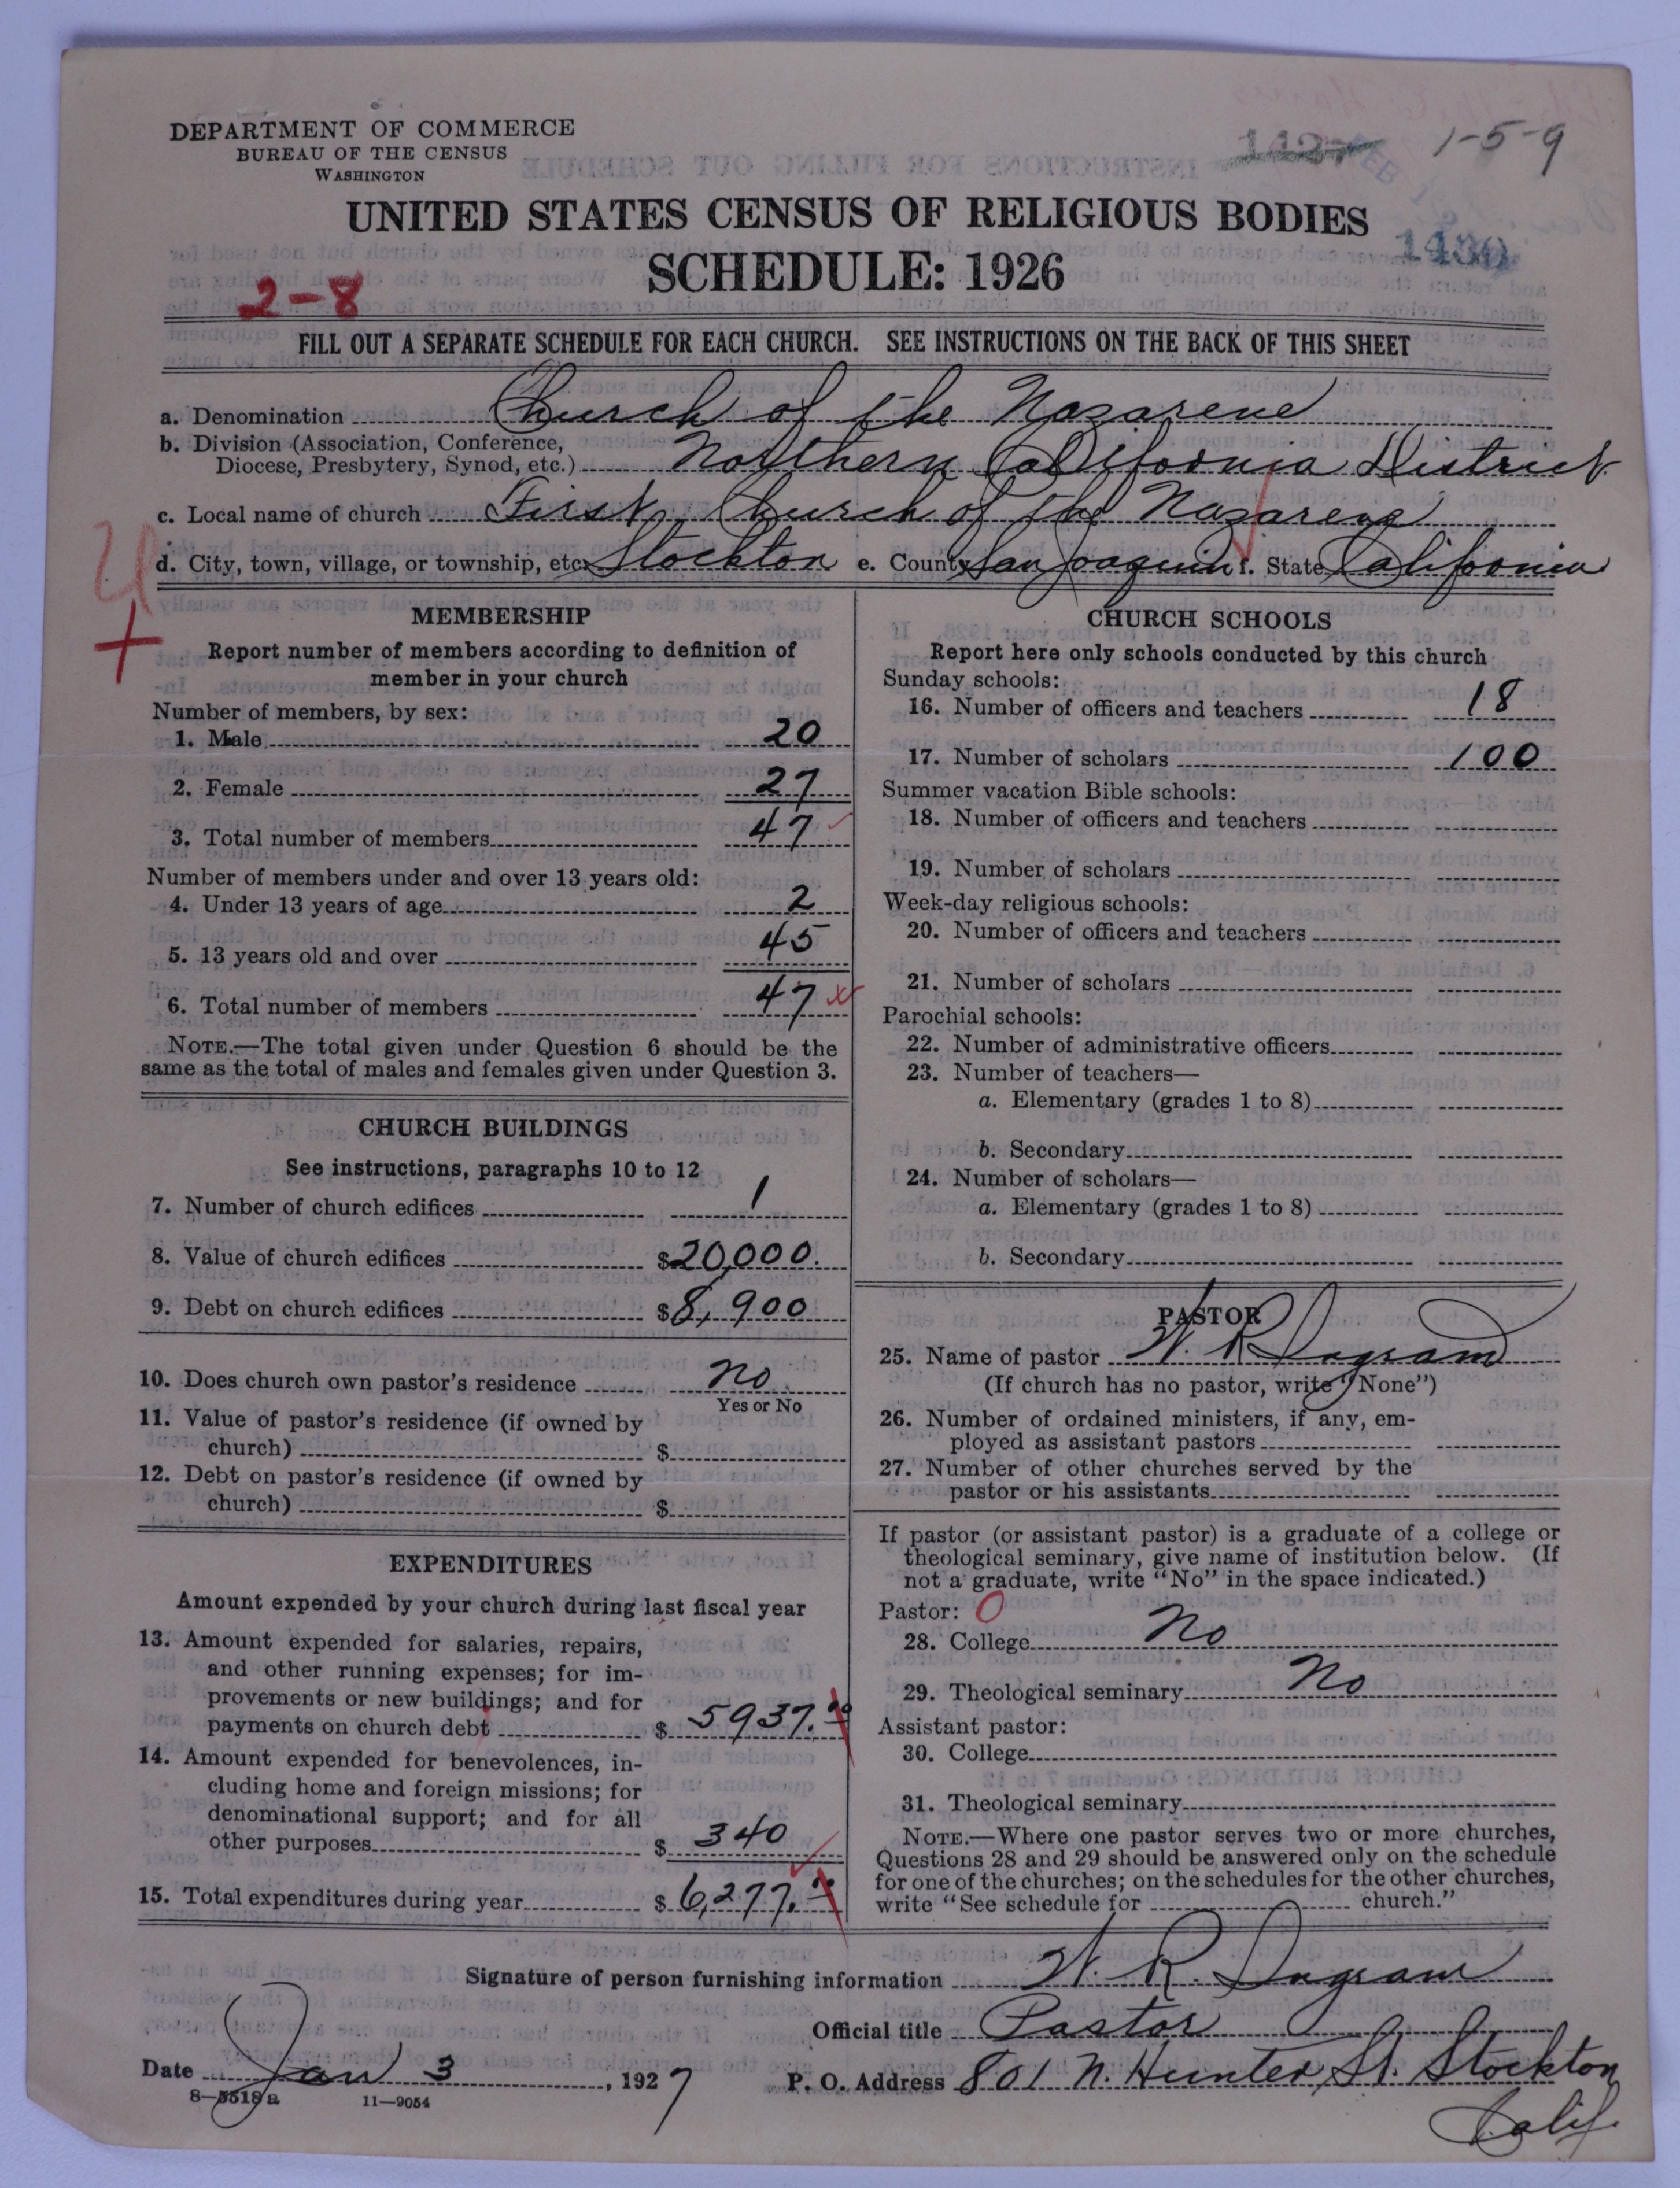 DEPARTMENT OF COMMERCE
BUREAU OF THE CENSUS
WASHINGTON
1427
1-5-9
UNITED STATES CENSUS OF RELIGIOUS BODIES
1430
SCHEDULE: 1926
2-8
FILL OUT A SEPARATE SCHEDULE FOR EACH CHURCH. SEE INSTRUCTIONS ON THE BACK OF THIS SHEET
a. Denomination Church of the Nazarene
b. Division (Association, Conference,
Diocese, Presbytery, Synod, etc.) Northern California District
c. Local name of church First Church of the Nazarene
d. City, town, village, or township, etc. Stockton e. County San Joaquin f. State California
MEMBERSHIP
Report number of members according to definition of
member in your church
Number of members, by sex:
1. Male 20
2. Female 27
3. Total number of members 47
Number of members under and over 13 years old:
4. Under 13 years of age 2
5. 13 years old and over 45
6. Total number of members 47
NOTE.—The total given under Question 6 should be the
same as the total of males and females given under Question 3.
CHURCH BUILDINGS
See instructions, paragraphs 10 to 12
7. Number of church edifices 1
8. Value of church edifices $20,000.
9. Debt on church edifices $8,900
10. Does church own pastor's residence no
Yes or No
11. Value of pastor's residence (if owned by
church) $
12. Debt on pastor's residence (if owned by
church) $
EXPENDITURES
Amount expended by your church during last fiscal year
13. Amount expended for salaries, repairs,
and other running expenses; for im-
provements or new buildings; and for
payments on church debt $ 5937.00
14. Amount expended for benevolences, in-
cluding home and foreign missions; for
denominational support; and for all
other purposes $ 340
15. Total expenditures during year $ 6,277.00
CHURCH SCHOOLS
Report here only schools conducted by this church
Sunday schools:
16. Number of officers and teachers 18
17. Number of scholars 100
Summer vacation Bible schools:
18. Number of officers and teachers
19. Number of scholars
Week-day religious schools:
20. Number of officers and teachers
21. Number of scholars
Parochial schools:
22. Number of administrative officers
23. Number of teachers—
a. Elementary (grades 1 to 8)
b. Secondary
24. Number of scholars—
a. Elementary (grades 1 to 8)
b. Secondary
PASTOR
25. Name of pastor W. R. Ingram
(If church has no pastor, write "None")
26. Number of ordained ministers, if any, em-
ployed as assistant pastors
27. Number of other churches served by the
pastor or his assistants
If pastor (or assistant pastor) is a graduate of a college or
theological seminary, give name of institution below. (If
not a graduate, write "No" in the space indicated.)
Pastor: 0
28. College No
29. Theological seminary No
Assistant pastor:
30. College
31. Theological seminary
NOTE.—Where one pastor serves two or more churches,
Questions 28 and 29 should be answered only on the schedule
for one of the churches; on the schedules for the other churches,
write "See schedule for church."
Signature of person furnishing information W. R. Ingram
Official title Pastor
Date Jan 3, 1927
P. O. Address 801 N. Hunter St. Stockton
Calif.
8-5518a 11-9054